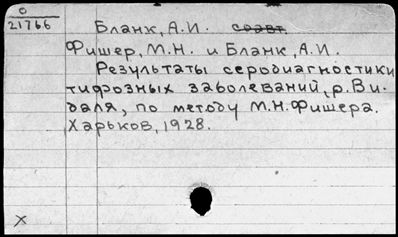 О
21766
Бланк, А.И. соавт.
Фишер, М.Н. и Бланк, А.И.
Результаты серодиагностики
тифозных заболеваний, р. Ви-
даля, по методу М.Н.Фишера.
Харьков, 1928.
X